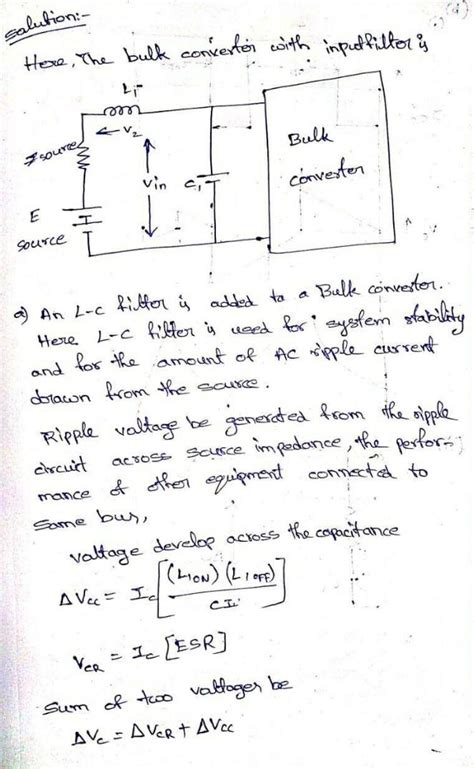 Solution:-
Here, The bulk converter with inputfilter is
L1
← V2
Zsource
Vin
C1
Bulk
converter
E
source
a) An L-C filter is added to a Bulk converter.
Here L-C filter is used for system stability
and for the amount of AC ripple current
drawn from the source.
Ripple voltage be generated from the ripple
circuit across source impedance, the perfor-
mance of other equipment connected to
same bus,
voltage develop across the capacitance
ΔVcc = Ic [(L1ON) (L1OFF) / CI]
VCR = Ic [ESR]
Sum of two voltages be
ΔVc = ΔVCR + ΔVCC